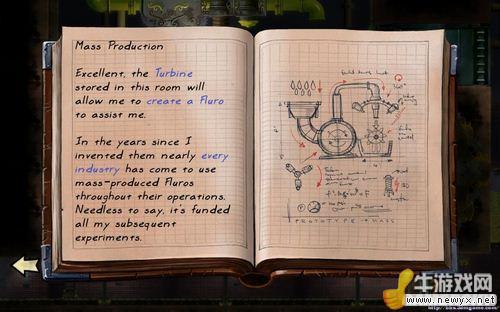 Mass Production
Excellent, the Turbine
stored in this room will
allow me to create a Fluro
to assist me.
In the years since I
invented them nearly every
industry has come to use
mass-produced Fluros
throughout their operations.
Needless to say, it's funded
all my subsequent
experiments.
PROTOTYPE → MASS
牛游戏网
www.newyx.net